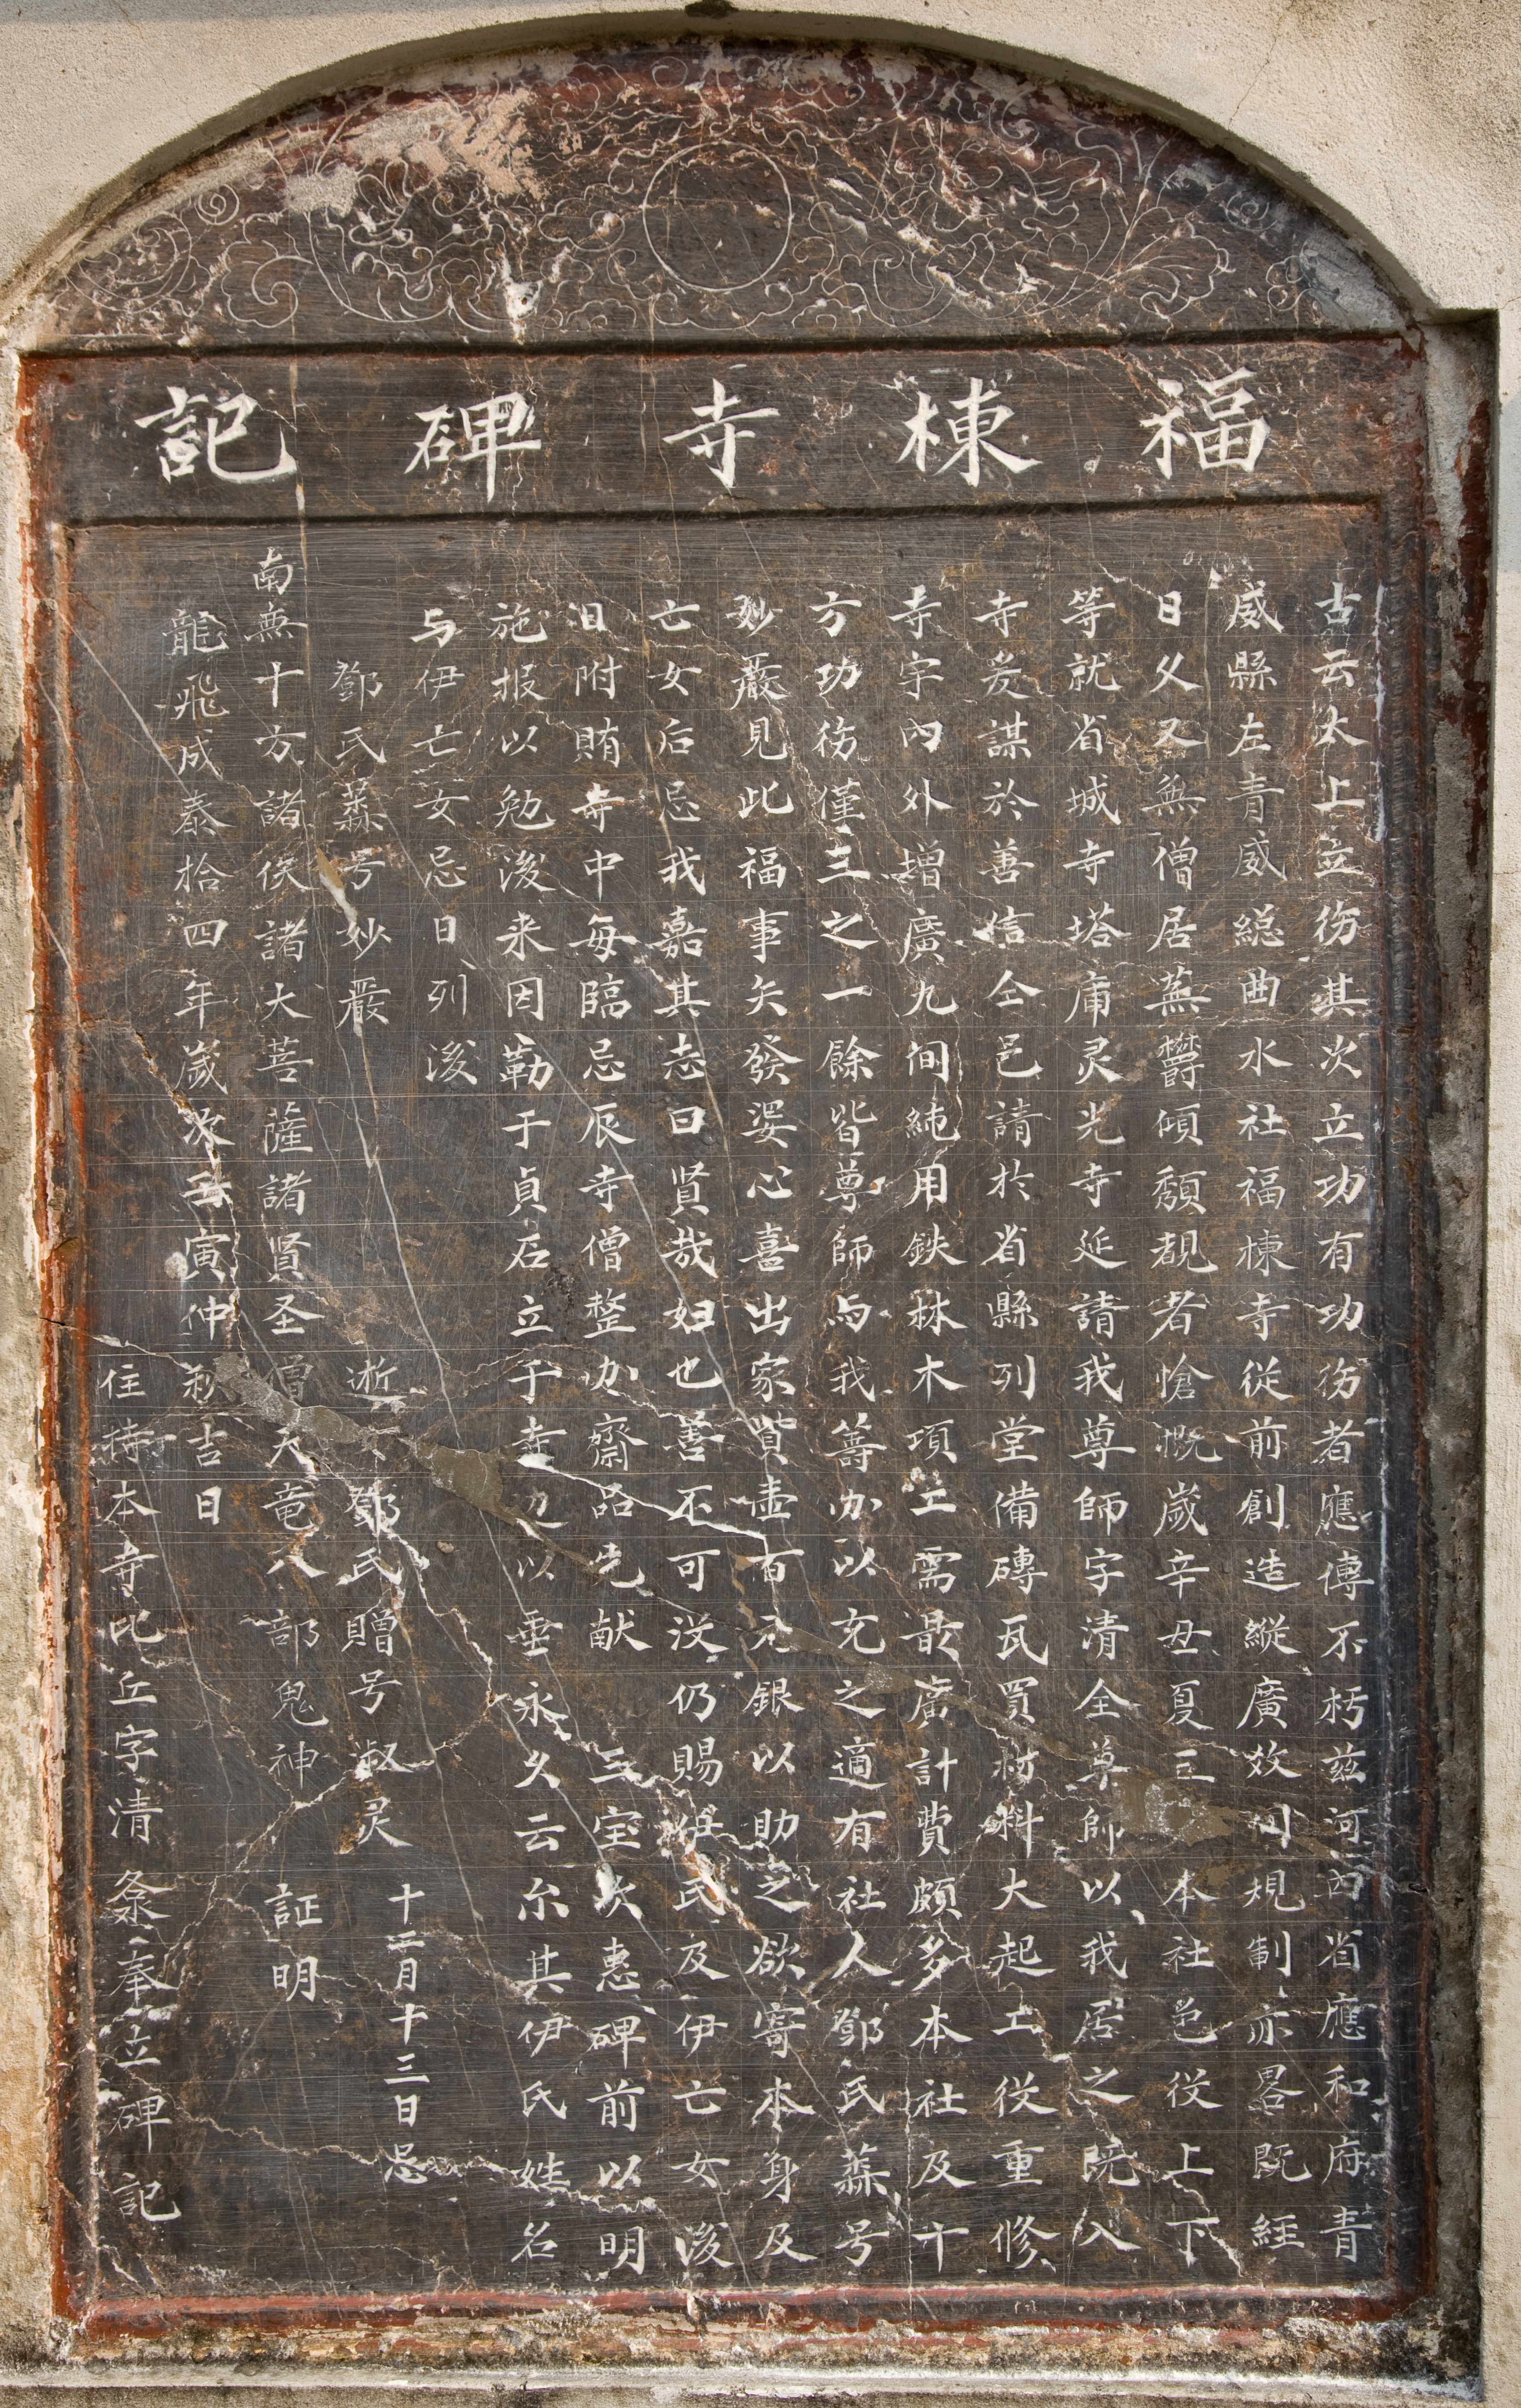 福棟寺碑記
古云太上立德其次立功有功德者應傳不朽茲河內省應和府青
威縣左青威總曲水社福棟寺從前創造縱廣效制規制亦畧既經
日久又無僧居蕪鬱傾頹覩者愴慨歲辛丑夏三本社邑役上下
等就省城寺塔庯灵光寺延請我尊師字清全尊師以我居之既入
寺爰謀於善信仝邑請於省縣列堂備磚瓦買材料大起工役重修
寺宇內外增廣九间純用鉄林木項工需最廣計費頗多本社及十
方功德僅三之一餘皆尊師与我籌办以充之適有社人鄧氏蕊号
妙嚴見此福事矢發婆心喜出家貲壹百元銀以助之欲寄本身及
亡女后忌我嘉其志曰賢哉妇也善不可没仍賜伊氏及伊亡女後
泪附賄寺中每臨忌辰寺僧整办齋品先献三宝次惠碑前以明
施报以勉後来因勒于貞石立于寺边以垂永久云尔其伊氏姓名
与伊亡女忌日列後
鄧氏蕊号妙嚴
逝女鄧氏贈号淑灵十二月十三日忌
南無十方諸佛諸大菩薩諸賢圣僧天竜八部鬼神証明
龍飛成泰拾四年歲次壬寅仲秋吉日
住持本寺比丘字清粂奉立碑記